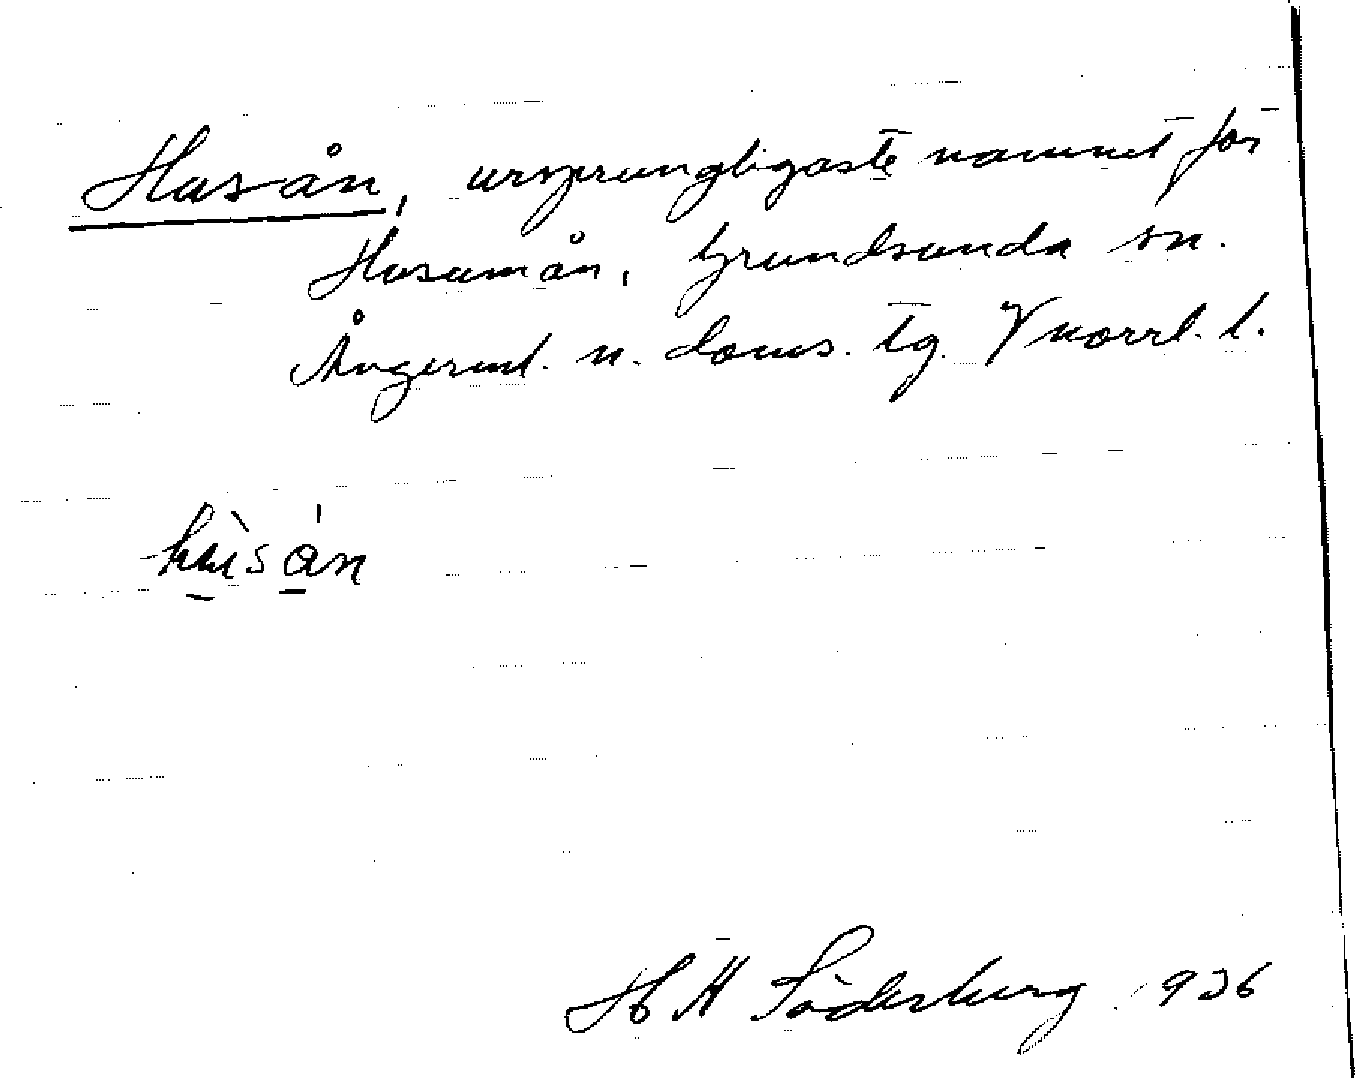 Husån, ursprungligaste namnet för
Husumån, Grundsunda sn.
Ångerml. n. doms. tg. Vnorrl. l.
hùsån
H H Söderberg 1936